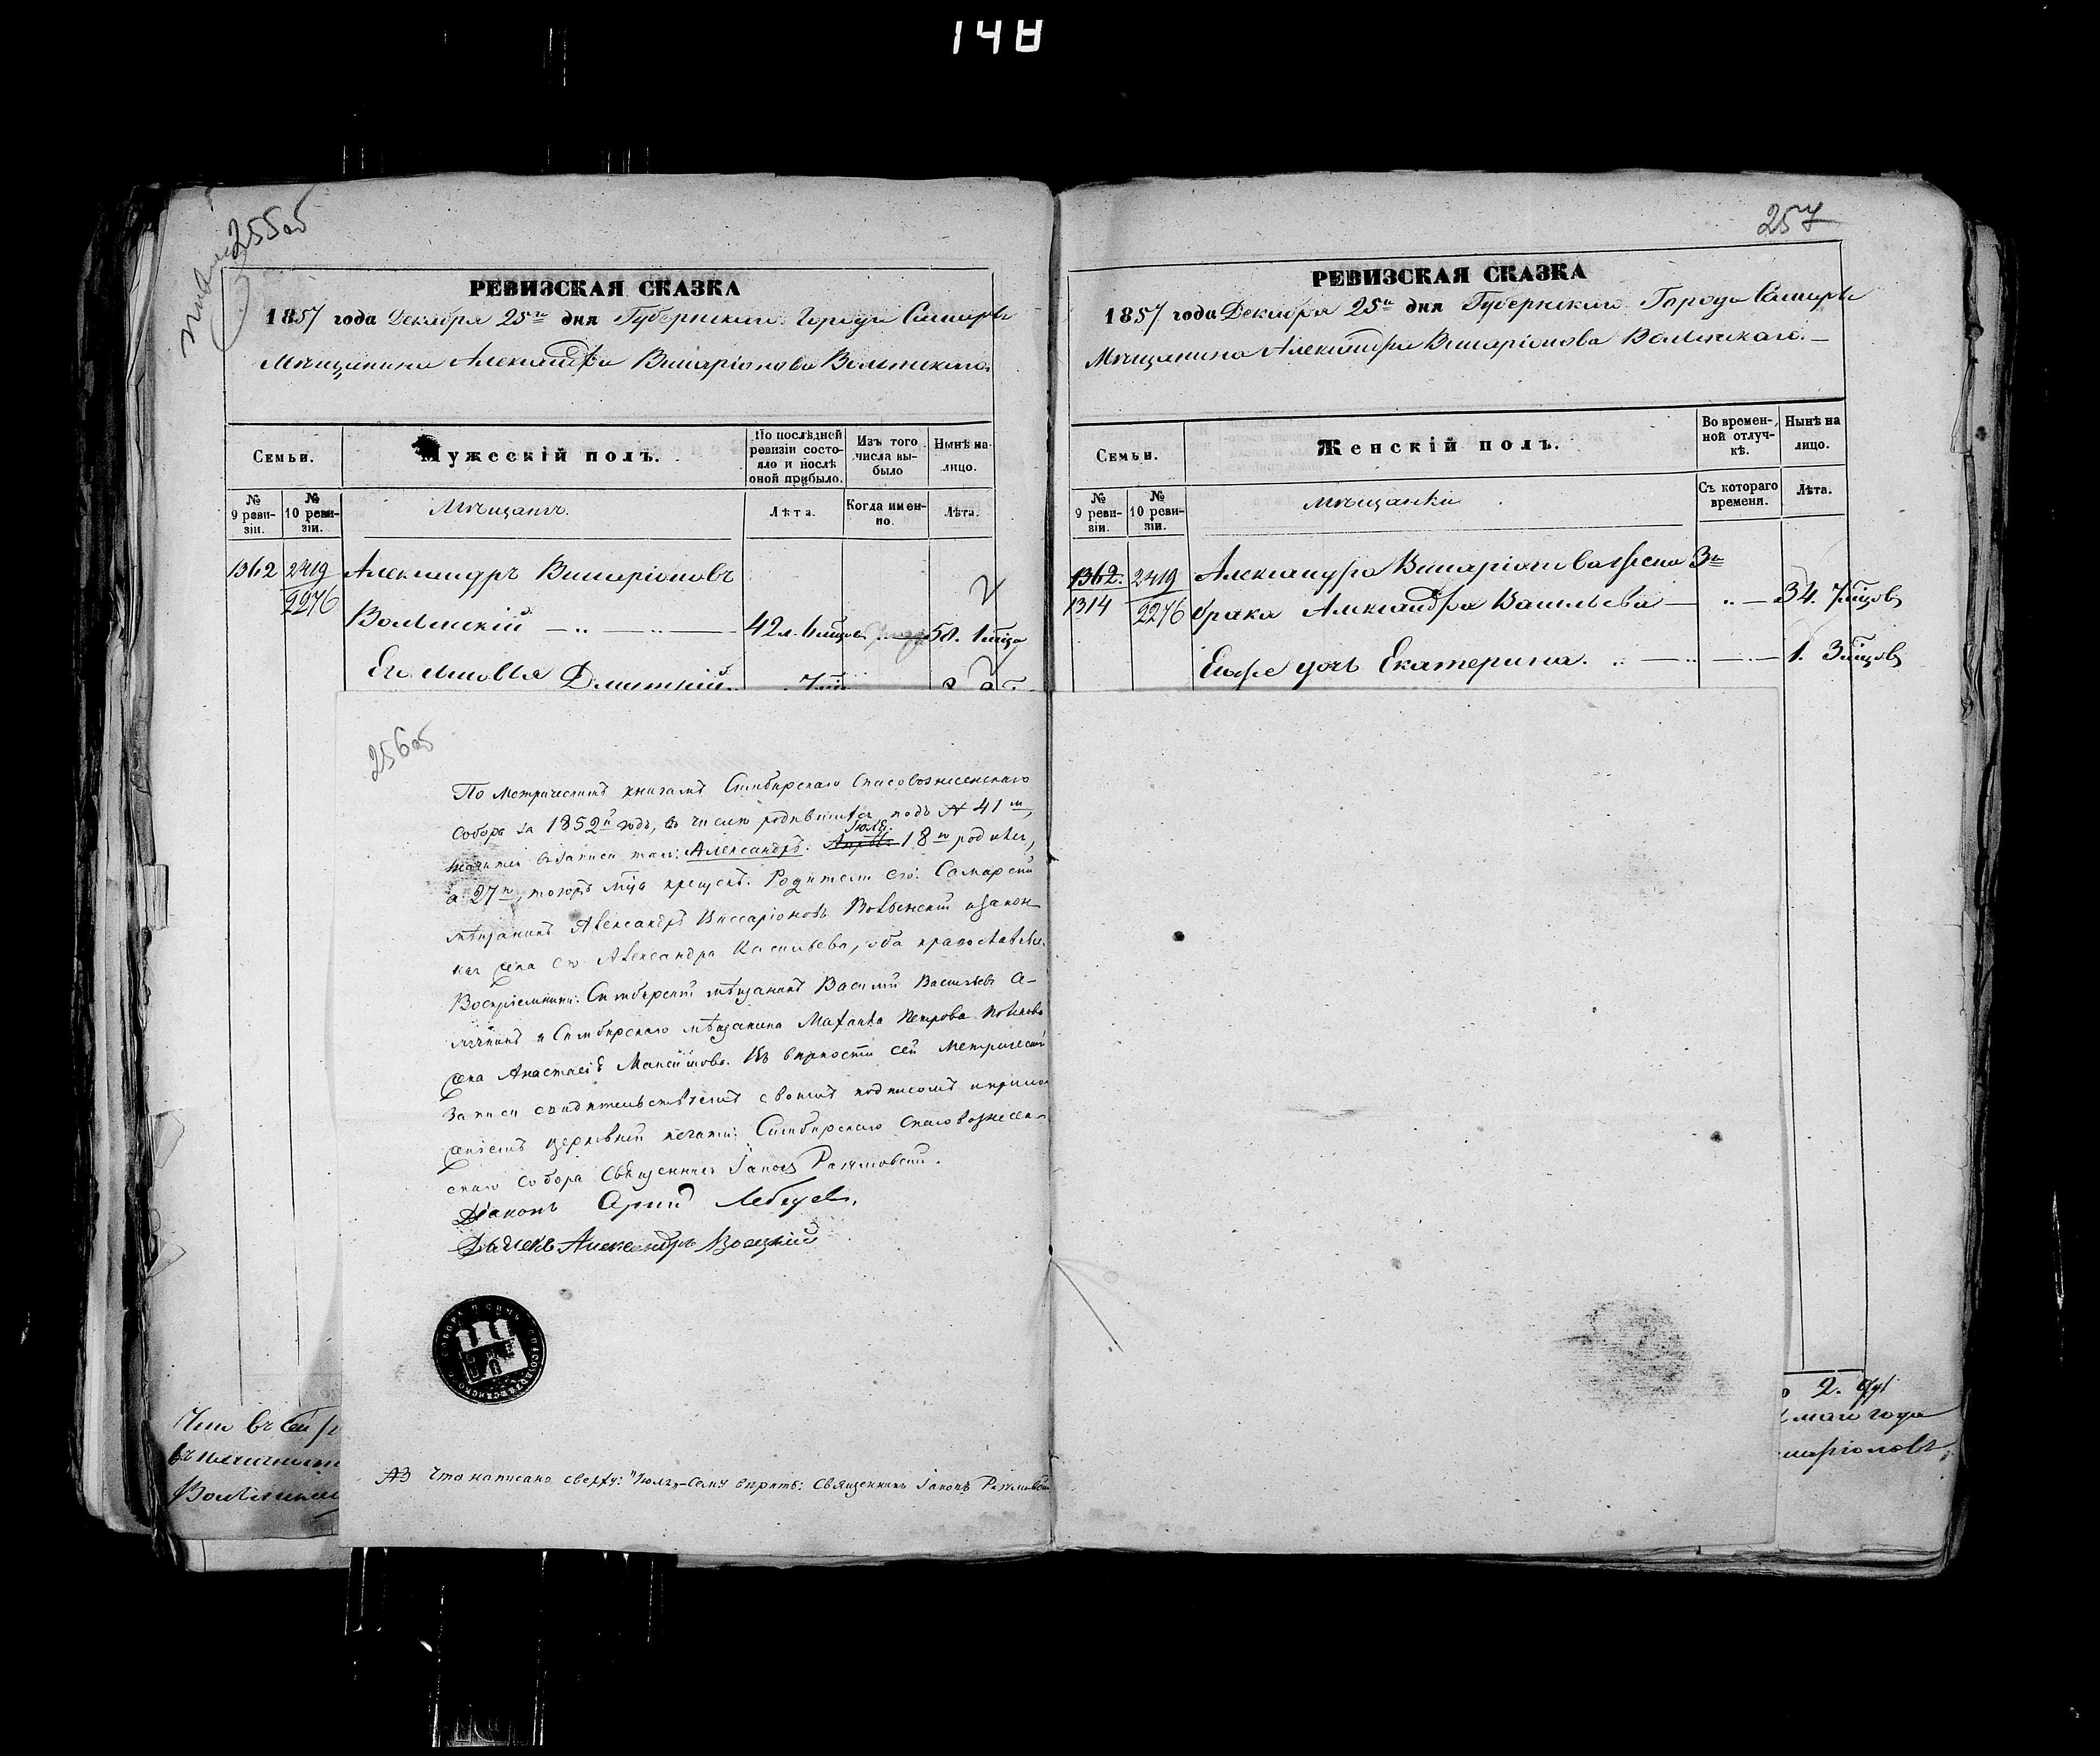 148
255об
257
РЕВИЗСКАЯ СКАЗКА
1857 года Декабря 25го дня Губернскаго Города Самары
Мѣщанина Александра Висаріонова Волынскаго.
Семьи.
Мужескій полъ.
По послѣдней ревизіи состояло и послѣ оной прибыло.
Изъ того числа выбыло
Нынѣ на лицо.
№ 9 ревизіи.
№ 10 ревизіи.
Мѣщанъ.
Лѣта.
Когда именно.
Лѣта.
1362 2419 Александръ Висаріоновъ
2276
Волынскій 42 л. 6 мцов
Его
РЕВИЗСКАЯ СКАЗКА
1857 года Декабря 25го дня Губернскаго Города Самары
Мѣщанина Александра Висаріонова Волынскаго.
Семьи.
Женскій полъ.
Во временной отлучкѣ.
Нынѣ на лицо.
№ 9 ревизіи.
№ 10 ревизіи.
мѣщанки
Съ котораго времени.
Лѣта.
1362. 2419 Александра Висаріонова жена 3го
1314 2276 брака Александра Васильева 34. 7 мцов
Его же дочь Екатерина. 1. 3 мцов
256об
По метрическимъ книгамъ Симбирскаго Спасовознесенскаго
Собора за 1852й годъ, въ числѣ родившихся подъ № 41м,
значится записи такъ: Александръ. Июля 18го родился,
а 27го, тогожъ мца крещенъ. Родители его: Самарскій
мѣщанинъ Александръ Виссаріоновъ Волынскій и закон
ная жена его Александра Васильева, оба православные.
Воспріемники: Симбирскій мѣщанинъ Василій Васильевъ
и Симбирскаго мѣщанина Петрова
жена Анастасія Максимова. Въ вѣрности сей метрической
записи свидѣтельствуемъ своимъ подписомъ и прило
женіемъ церковной печати: Симбирскаго Спасовознесен
скаго Собора Священникъ Іаковъ
Діаконъ Лебедевъ.
Дьячекъ Александръ
Что написано сверху: "Июля" сему вѣрить: Священникъ Іаковъ
Что въ сей
2. душ
маго года